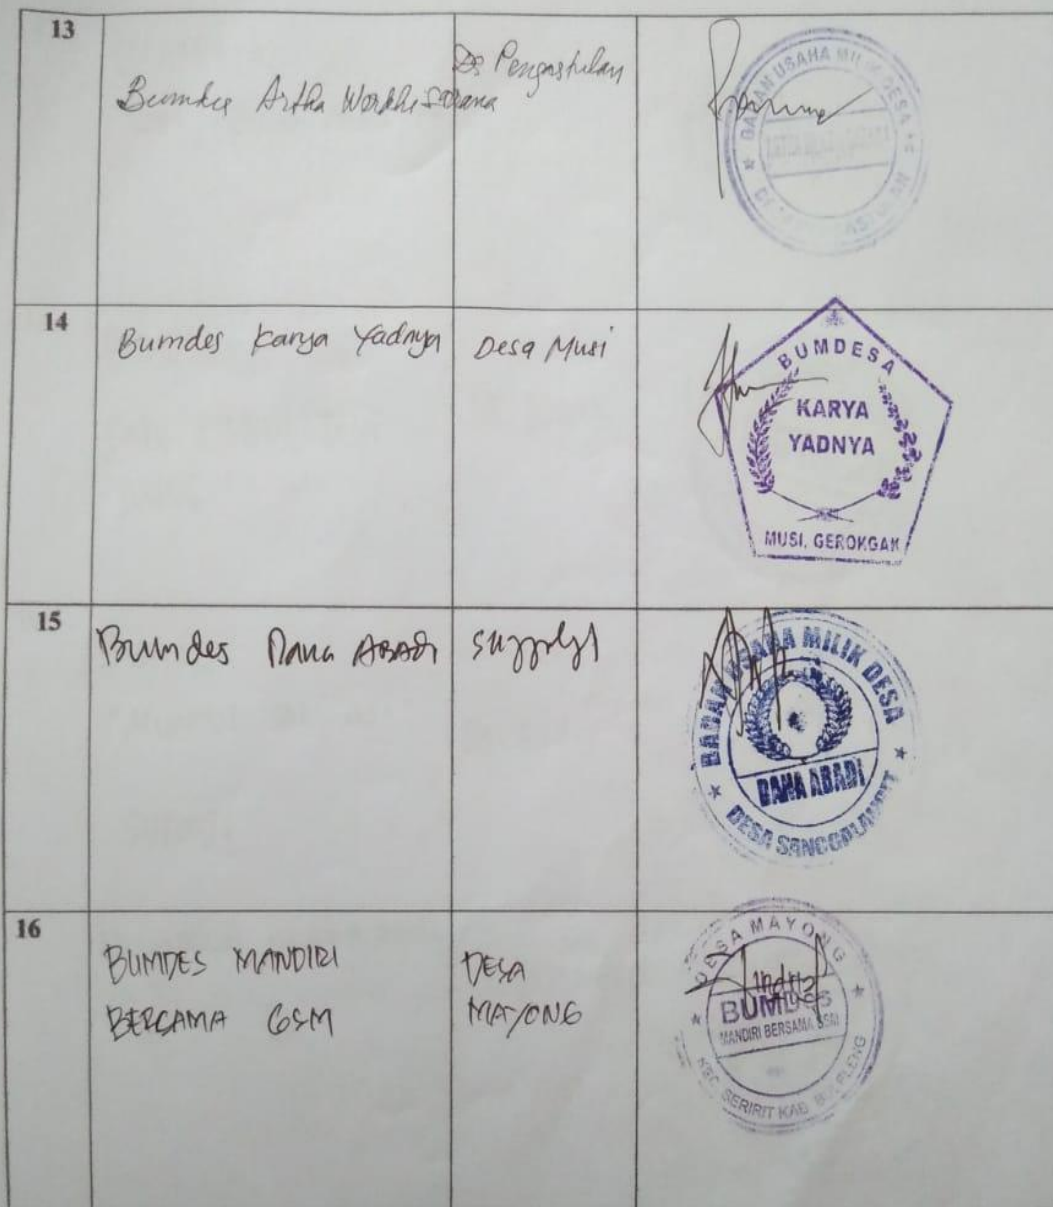 13
Bumdes Artha
Ds Pengastulan
BADAN USAHA MILIK DESA
14
Bumdes Karya Yadnya
Desa Musi
BUMDESA
KARYA
YADNYA
MUSI, GEROKGAK
15
Bumdes Dana ABADI
BADAN USAHA MILIK DESA
DANA ABADI
DESA SANGGALANGIT
16
BUMDES MANDIRI
BERSAMA GSM
DESA
MAYONG
DESA MAYONG
BUMDES
MANDIRI BERSAMA
KEC. SERIRIT KAB. BULELENG